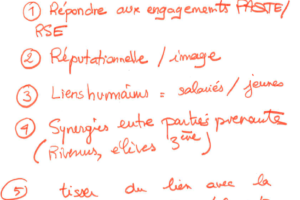 ① Répondre aux engagements PASTE/
RSE
② Réputationnelle / image
③ Liens humains = salariés / jeunes
④ Synergies entre parties prenante
(Riverains, élèves 3ème)
⑤ tisser du lien avec la